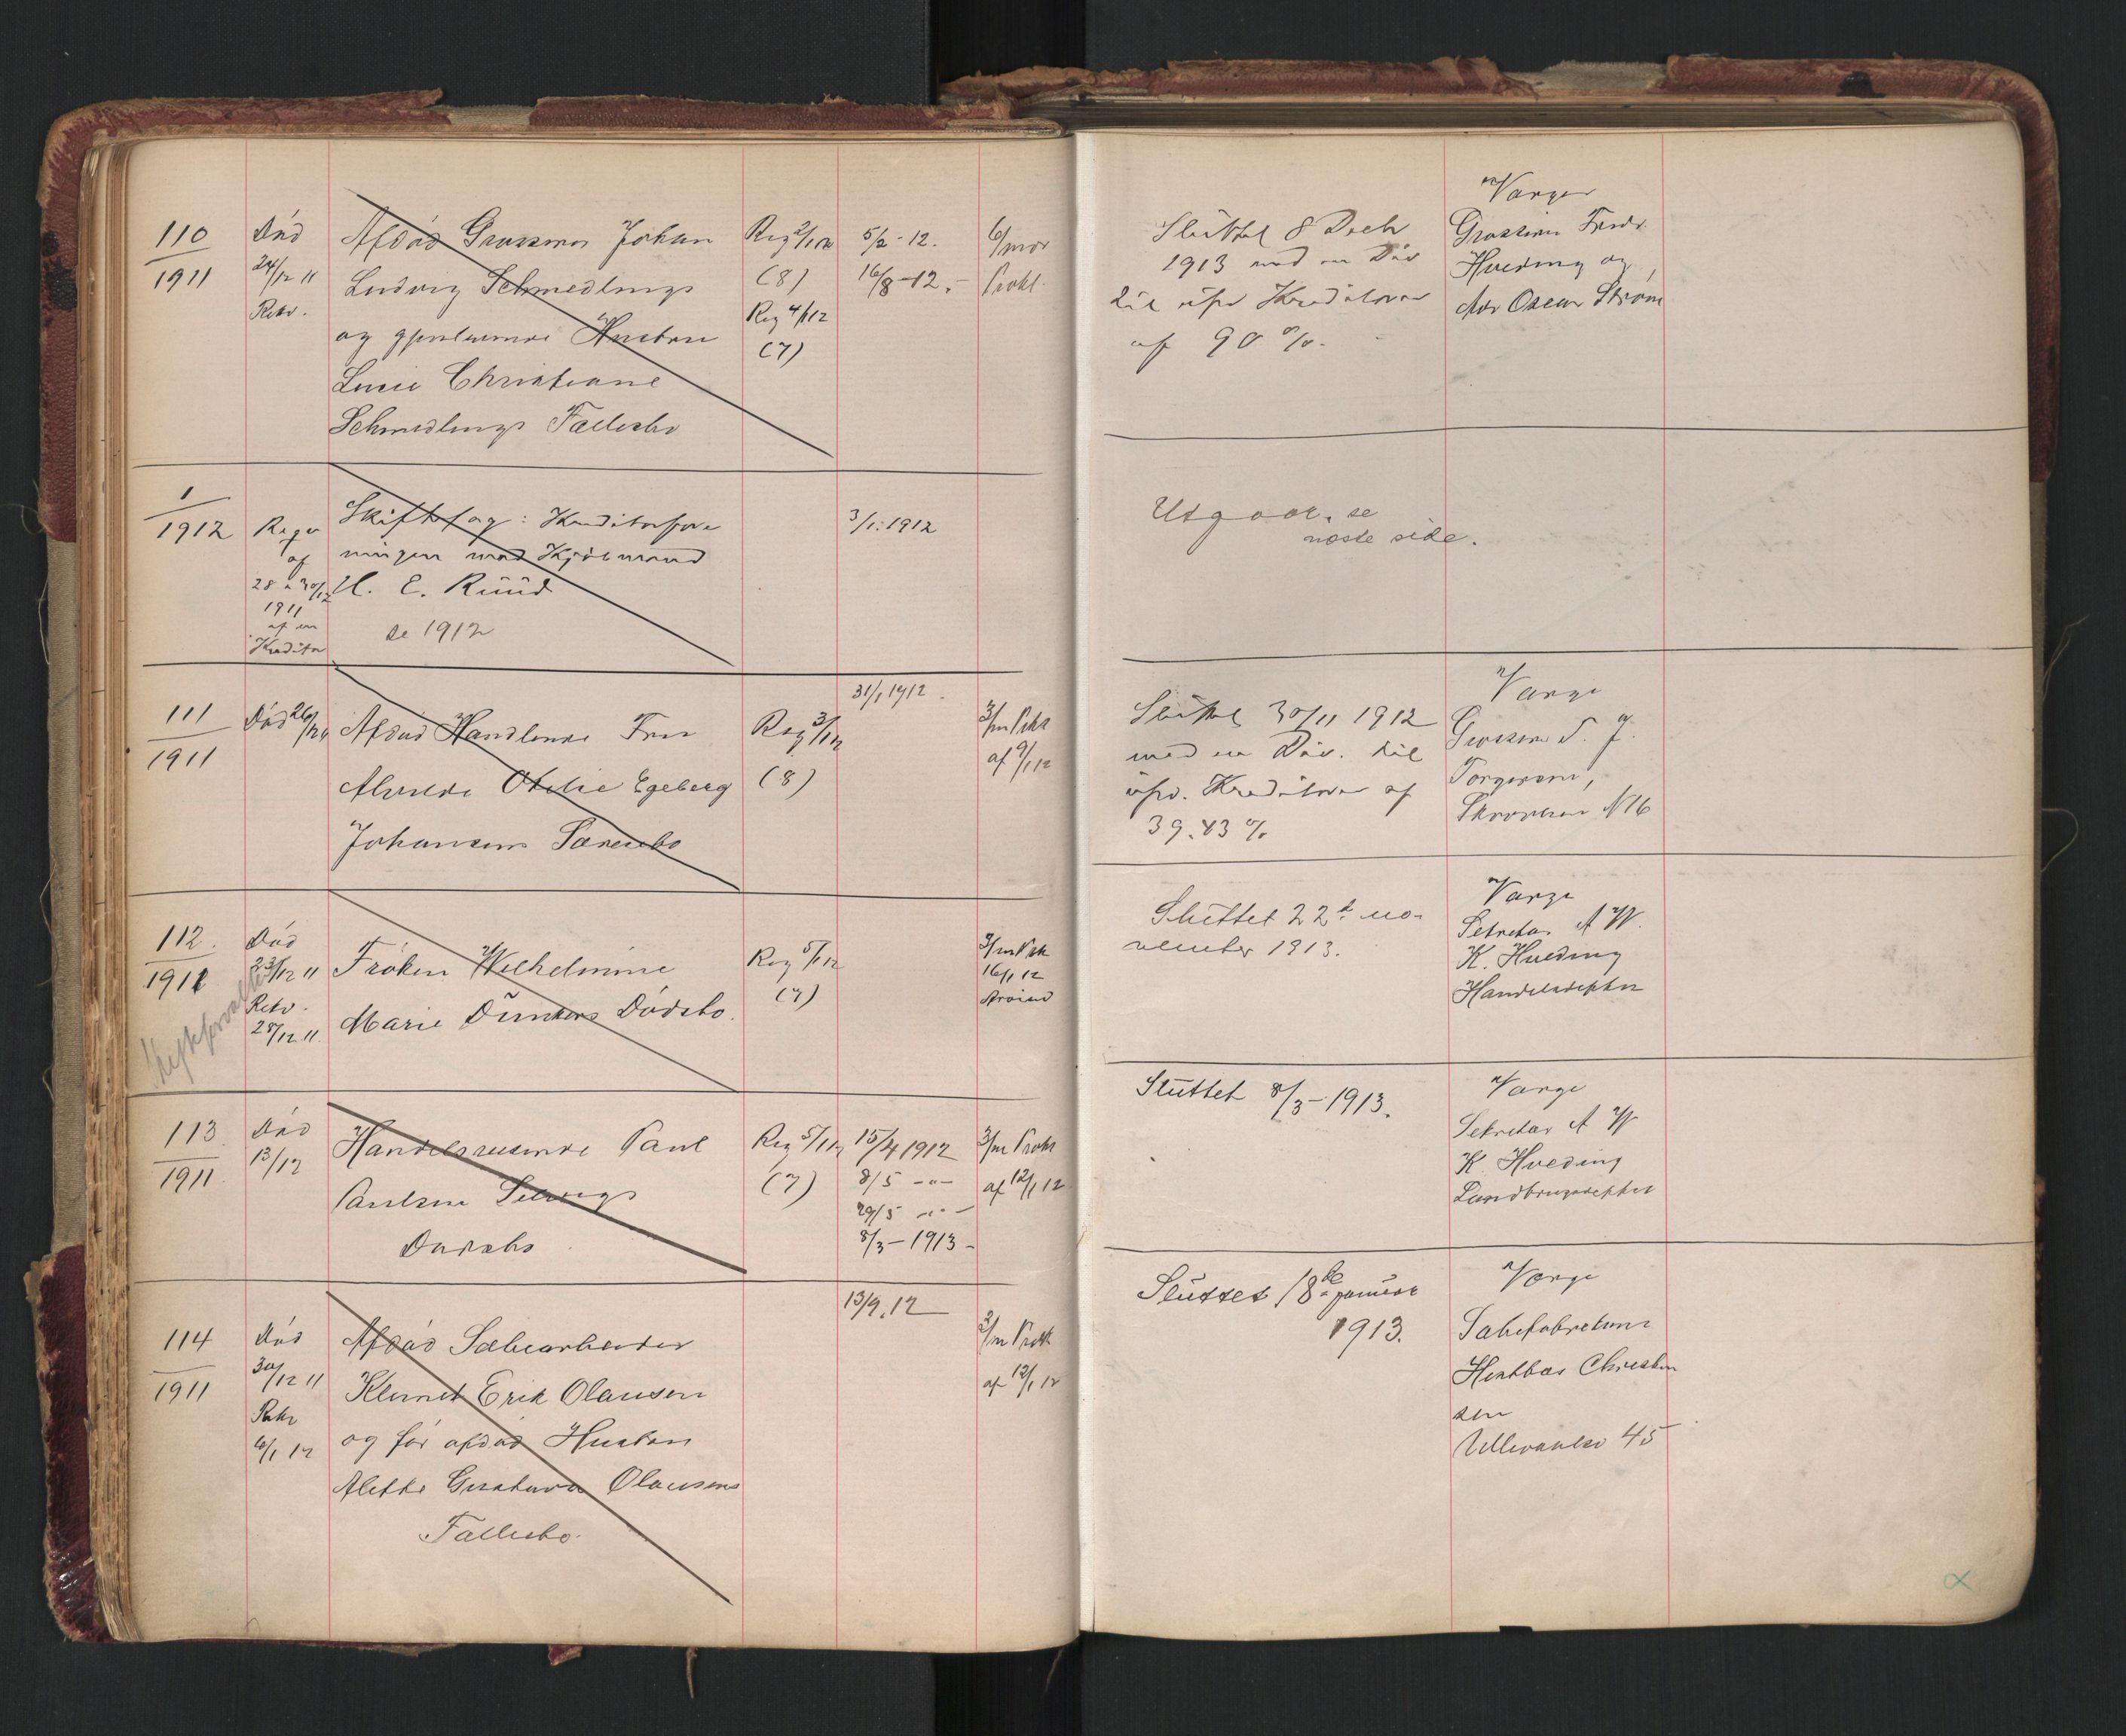 110
1911
Død
24/12 11
Rekv.
Afdød Grosserer Johan
Ludvig Schmedlings
og gjenlevende Hustru
Lucie Christiane
Schmedlings Fællesbo
Reg 2/1 12
(8)
Reg 4/1 12
(7)
5/2 - 12.
16/8 - 12.
6/mdr
Prokl.
Sluttet 8 Decb
1913 med en Div
til upr Kreditorer
af 90 %.
Værger
Grosserer Fredr.
Hveding og
Adv Oscar Strøm
1
1912
af
28 & 30/12
1911
af en
Kreditor
Skiftesag: Kreditorfore
ningen mod Kjøbmand
H. E. Ruud
se 1912
3/1. 1912
Utgaar, se
næste side.
111
1911
Død 26/12 11
Afdød Handlende Fru
Alvilde Otelie Egeberg
Johansens Særebo
Reg 3/1 12
(8)
31/1 1912.
3/m Prkl
af 9/1 12
Sluttet 30/11 1912
med en Div. til
upr. Kreditorer af
39.43 %
Værge
Grosserer T. J.
Torgersen,
N 16
112.
1911
Skifteforvalter
Død
23/12 11
Rekv.
28/12 11.
Frøken Wilhelmine
Marie Dunkers Dødsbo.
Reg 5/1 12
(7)
3/m Prk
16/1 12
Sluttet 22d no-
vember 1913.
Værge
Sekretær A W.
K. Hveding
Handelsdepten
113.
1911.
Død
13/12
Handelsreisende Paul
Paulsen Selvigs
Dødsbo
Reg 5/1 12
(7)
15/4 1912
8/5 -"-
29/5 -"-
8/3 - 1913 -
3/m Prokl
af 12/1 12
Sluttet 8/3 - 1913.
Værge
Sekretær A W
K. Hveding
Landbrugsdeptet
114
1911
Død
30/12 11
Rekv
6/1 12
Afdød Sæbearbeider
Klemet Erik Olausen
og før afdød Hustru
Alette Gustava Olausens
Fællesbo.
13/9.12
3/m Prokl
af 12/1 12
Sluttet 18de januar
1913.
Værge
Sæbefabrikant
Christen
sen
Ullevaalsv 45